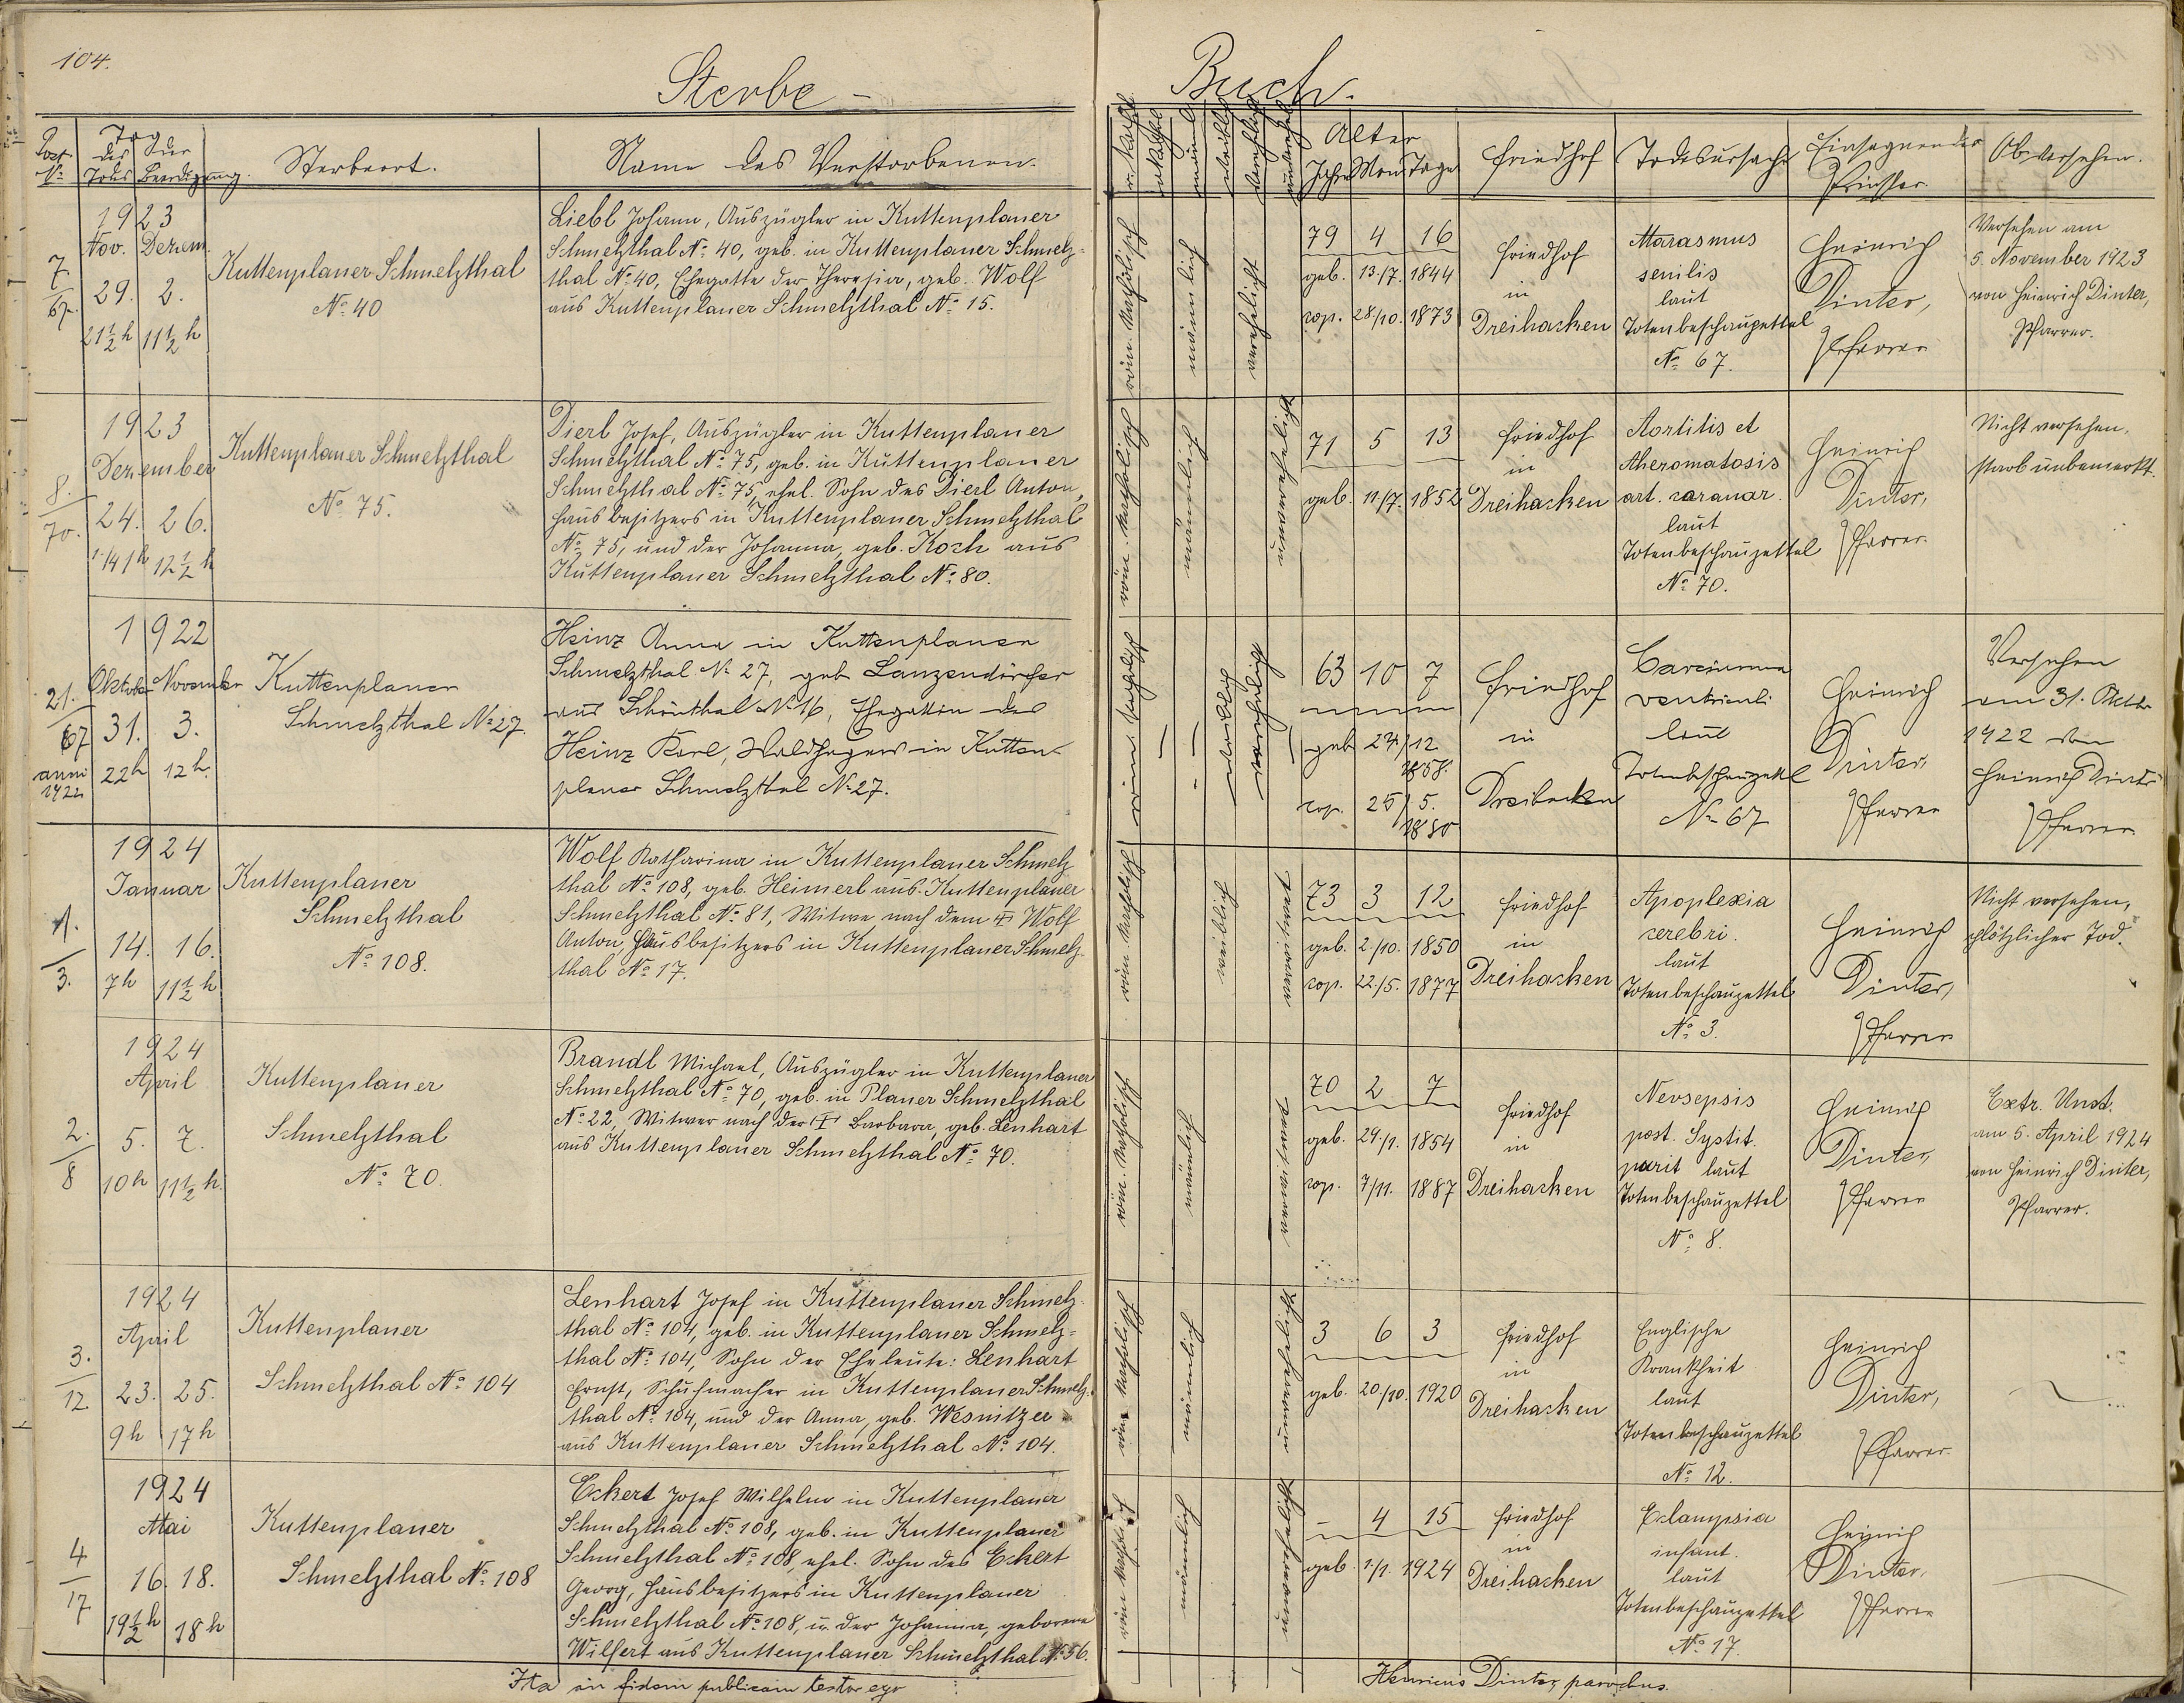 104.
Sterbe-
Buch.
Post N° Tag des Todes der Beerdigung. Sterbeort. Name des Verstorbenen.
männl. weiblich verehelicht unverehel. Alter Jahre Mon. Tage Friedhof Todesursache Einsegnender Priester Ob versehen.
7/67.
1923
Nov. Dezem.
29. 2.
21½ h 11½ h
Kuttenplaner Schmelzthal
N° 40
Liebl Johann, Auszügler in Kuttenplaner
Schmelzthal N° 40, geb. in Kuttenplaner Schmelz-
thal N° 40, Ehegatte der Theresia, geb. Wolf
aus Kuttenplaner Schmelzthal N° 15.
röm. katholisch
männlich
verehelicht
79 4 16
geb. 13./7. 1844
cop. 28./10. 1873
Friedhof
in
Dreihacken
Marasmus
senilis
laut
Totenbeschauzettel
N° 67.
Heinrich
Dinter,
Pfarrer
Versehen am
5. November 1923
von Heinrich Dinter,
Pfarrer.
8./70.
1923
Dezember
24. 26.
12½ h
Kuttenplaner Schmelzthal
N° 75.
Dierl Josef, Auszügler in Kuttenplaner
Schmelzthal N° 75, geb. in Kuttenplaner
Schmelzthal N° 75, ehel. Sohn des Dierl Anton,
Hausbesitzers in Kuttenplaner Schmelzthal
N° 75, und der Johanna, geb. Koch aus
Kuttenplaner Schmelzthal N° 80.
röm. katholisch
männlich
unverehelicht
71 5 13
geb. 11/7. 1852
Friedhof
in
Dreihacken
Aortitis et
Atheromatosis
art. coronar.
laut
Totenbeschauzettel
N° 70.
Heinrich
Dinter,
Pfarrer.
Nicht versehen,
starb unbemerkt.
21./67
anni
1922
1922
Oktober November
31. 3.
22h 12h.
Kuttenplaner
Schmelzthal N° 27.
Heinz Anna in Kuttenplaner
Schmelzthal N° 27, geb Lanzendörfer
aus Schönthal N° 16, Ehegattin des
Heinz Karl, Waldhegers in Kutten-
planer Schmelzthal N° 27.
röm. katholisch
weiblich
verehelicht
63 10 7
geb 24/12
1858.
cop. 25/5.
1880
Friedhof
in
Dreihacken
Carcinoma
ventriculi
laut
Totenbeschauzettel
N° 67
Heinrich
Dinter,
Pfarrer
Versehen
am 31. Oktbr
1922 von
Heinrich Dinter
Pfarrer.
1./3.
1924
Januar
14. 16.
7h 11½ h
Kuttenplaner
Schmelzthal
N° 108.
Wolf Katharina in Kuttenplaner Schmelz-
thal N° 108, geb. Heimerl aus Kuttenplaner
Schmelzthal N° 81, Witwe nach dem † Wolf
Anton, Hausbesitzers in Kuttenplaner Schmelz-
thal N° 17.
röm. katholisch
weiblich
verwitwet
73 3 12
geb. 2./10. 1850
cop. 22./5. 1877
Friedhof
in
Dreihacken
Apoplexia
cerebri.
laut
Totenbeschauzettel
N° 3.
Heinrich
Dinter,
Pfarrer
Nicht versehen,
plötzlicher Tod.
2./8
1924
April
5. 7.
10h 11½ h.
Kuttenplaner
Schmelzthal
N° 70.
Brandl Michael, Auszügler in Kuttenplaner
Schmelzthal N° 70, geb. in Planer Schmelzthal
N° 22, Witwer nach der † Barbara, geb. Lenhart
aus Kuttenplaner Schmelzthal N° 70.
röm. katholisch
männlich
verwitwet
70 2 7
geb. 29./1. 1854
cop. 7/11. 1887
Friedhof
in
Dreihacken
post.
laut
Totenbeschauzettel
N° 8.
Heinrich
Dinter,
Pfarrer
Extr. Unct.
am 5. April 1924
von Heinrich Dinter,
Pfarrer.
3./12
1924
April
23. 25.
9h 17h
Kuttenplaner
Schmelzthal N° 104
Lenhart Josef in Kuttenplaner Schmelz-
thal N° 104, geb. in Kuttenplaner Schmelz-
thal N° 104, Sohn der Eheleute: Lenhart
Ernst, Schuhmacher in Kuttenplaner Schmelz-
thal N° 104, und der Anna, geb. Wesnitzer
aus Kuttenplaner Schmelzthal N° 104.
röm. katholisch
männlich
unverehelicht
3 6 3
geb. 20/10. 1920
Friedhof
in
Dreihacken
Englische
Krankheit
laut
Totenbeschauzettel
N° 12.
Heinrich
Dinter,
Pfarrer.
4/17
1924
Mai
16. 18.
19½ h 18 h
Kuttenplaner
Schmelzthal N° 108
Eckert Josef Wilhelm in Kuttenplaner
Schmelzthal N° 108, geb. in Kuttenplaner
Schmelzthal N° 108, ehel. Sohn des Eckert
Georg, Hausbesitzers in Kuttenplaner
Schmelzthal N° 108, u. der Johanna, geborene
Wilfert aus Kuttenplaner Schmelzthal N° 56.
röm. kathol.
männlich
unverehelicht
- 4 15
geb. 1./1. 1924
Friedhof
in
Dreihacken
Eclampsia
infant.
laut
Totenbeschauzettel
N° 17.
Heinrich
Dinter,
Pfarrer
Ita in fidem publicam testor ego
Henricus Dinter, parochus.